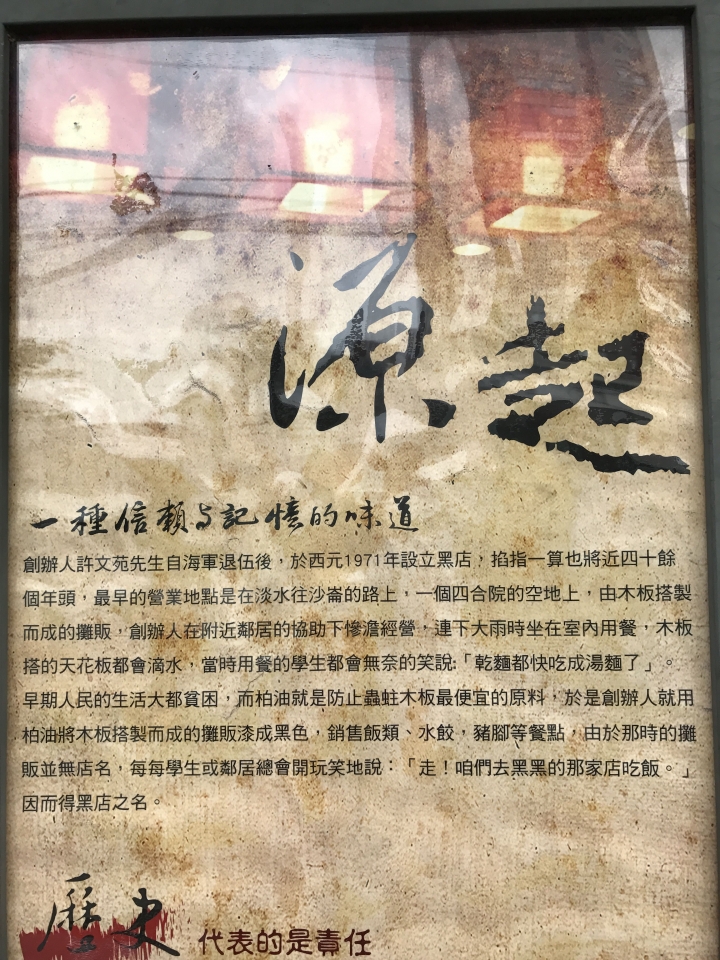 源起
一種信賴与記憶的味道
創辦人許文苑先生自海軍退伍後，於西元1971年設立黑店，掐指一算也將近四十餘
個年頭，最早的營業地點是在淡水往沙崙的路上，一個四合院的空地上，由木板搭製
而成的攤販，創辦人在附近鄰居的協助下慘澹經營，連下大雨時坐在室內用餐，木板
搭的天花板都會滴水，當時用餐的學生都會無奈的笑說:「乾麵都快吃成湯麵了」。
早期人民的生活大都貧困，而柏油就是防止蟲蛀木板最便宜的原料，於是創辦人就用
柏油將木板搭製而成的攤販漆成黑色，銷售飯類、水餃，豬腳等餐點，由於那時的攤
販並無店名，每每學生或鄰居總會開玩笑地說：「走！咱們去黑黑的那家店吃飯。」
因而得黑店之名。
歷史 代表的是責任